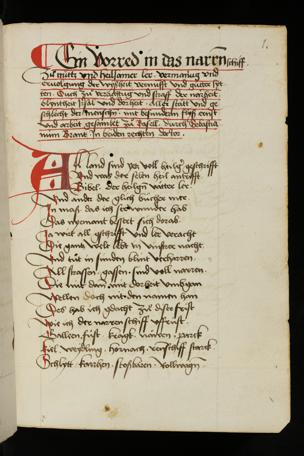 1.
Ein Vorred in das narren schiff
Zu nutz vnd heilsamer ler vermanung vnd
ervolgung der wyßheit vernufft vnd guter syt
ten. Ouch zu verachtung vnd straff der narrheit
blyntheit irsal vnd dorheit. Aller statt vnd ge
schlecht der menschen. mit besunderm flyß ernst
vnd arbeit gesamlet zu Basel. durch Sebastia
num Brant. In beiden rechten doctor.
All land sind yetz voll heilger geschrifft
Vnd was der selen heil antrifft
Bibel. der heilgen vatter ler.
Vnd ander der glich bücher mer.
In maß das ich ser wunder hab
Das niemant bessert sich dorab.
Ja wirt all gschrifft vnd ler veracht
Die gantz welt lebt in vinstrer nacht.
Vnd tut in sunden blint verharren
All strassen. gassen. sind voll narren.
Die nut dann mit dorheit vmbgan
Wellen doch nit den namen han
Des hab ich gedacht zu diser frist
Wie ich der narren schiff vffrist.
Galleen. fust. kragk. nawen. parck
Kiel. weydling. hornach. rennschiff starck
Schlytt. karrhen. stoßbaren. rollwagen